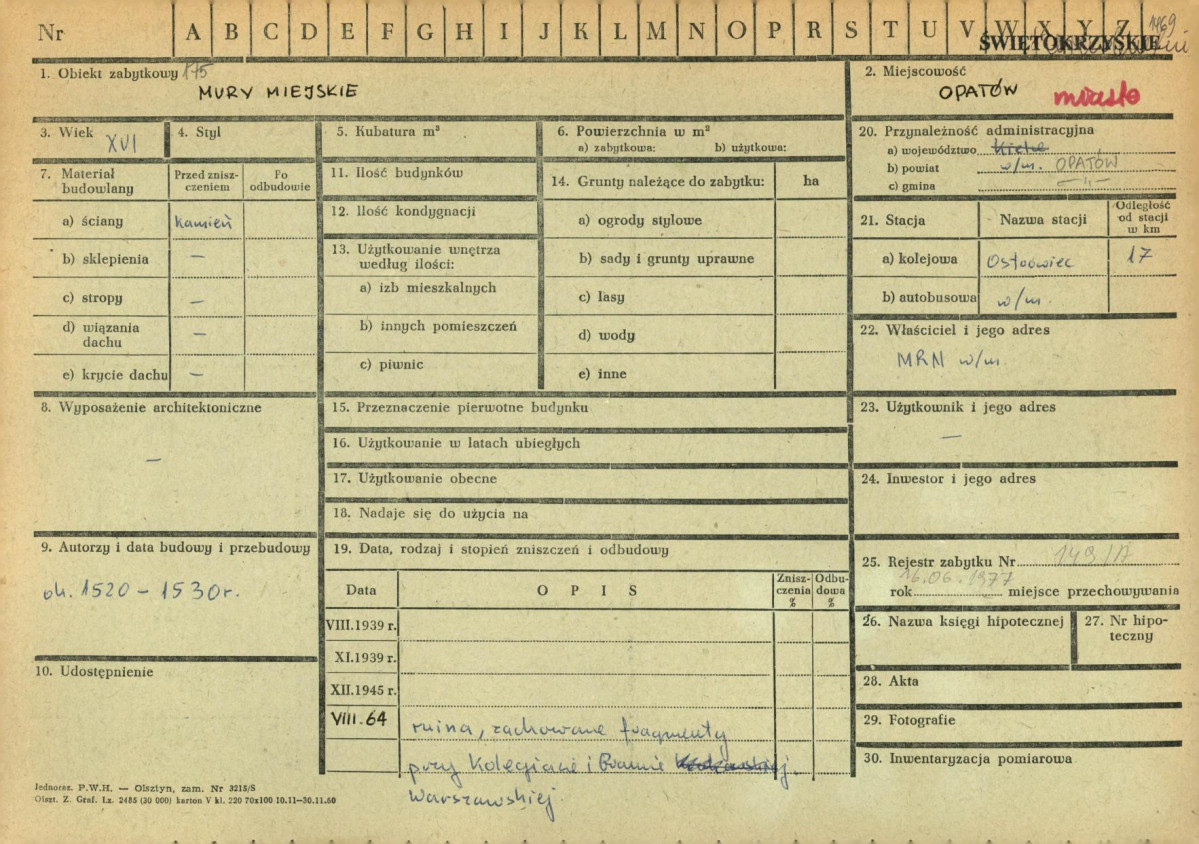 Nr A B C D E F G H I J K L M N O P R S T U V W X Y Z 1969
ŚWIĘTOKRZYSKIE
1. Obiekt zabytkowy 175
MURY MIEJSKIE
2. Miejscowość
OPATÓW miasto
3. Wiek XVI
4. Styl
5. Kubatura m³
6. Powierzchnia w m²
a) zabytkowa: b) użytkowa:
20. Przynależność administracyjna
a) województwo Kielce
b) powiat w/m. OPATÓW
c) gmina —„—
7. Materiał budowlany
Przed zniszczeniem
Po odbudowie
a) ściany kamień
b) sklepienia —
c) stropy —
d) wiązania dachu —
e) krycie dachu —
11. Ilość budynków
12. Ilość kondygnacji
13. Użytkowanie wnętrza
według ilości:
a) izb mieszkalnych
b) innych pomieszczeń
c) piwnic
14. Grunty należące do zabytku: ha
a) ogrody stylowe
b) sady i grunty uprawne
c) lasy
d) wody
e) inne
21. Stacja Nazwa stacji Odległość od stacji w km
a) kolejowa Ostrowiec 17
b) autobusowa w/m.
22. Właściciel i jego adres
MRN w/m.
8. Wyposażenie architektoniczne
—
15. Przeznaczenie pierwotne budynku
16. Użytkowanie w latach ubiegłych
17. Użytkowanie obecne
18. Nadaje się do użycia na
23. Użytkownik i jego adres
—
24. Inwestor i jego adres
9. Autorzy i data budowy i przebudowy
ok. 1520 - 1530 r.
10. Udostępnienie
19. Data, rodzaj i stopień zniszczeń i odbudowy
Data OPIS Zniszczenia % Odbudowa %
VIII.1939 r.
XI.1939 r.
XII.1945 r.
VIII.64 ruina, zachowane fragmenty
przy Kolegiacie i Bramie
Warszawskiej
25. Rejestr zabytku Nr 149/A
16.06.1977
rok miejsce przechowywania
26. Nazwa księgi hipotecznej
27. Nr hipoteczny
28. Akta
29. Fotografie
30. Inwentaryzacja pomiarowa
Jednoraz. P.W.H. — Olsztyn, zam. Nr 3215/S
Olszt. Z. Graf. Lz. 2485 (30 000) karton V kl. 220 70x100 10.11-30.11.60